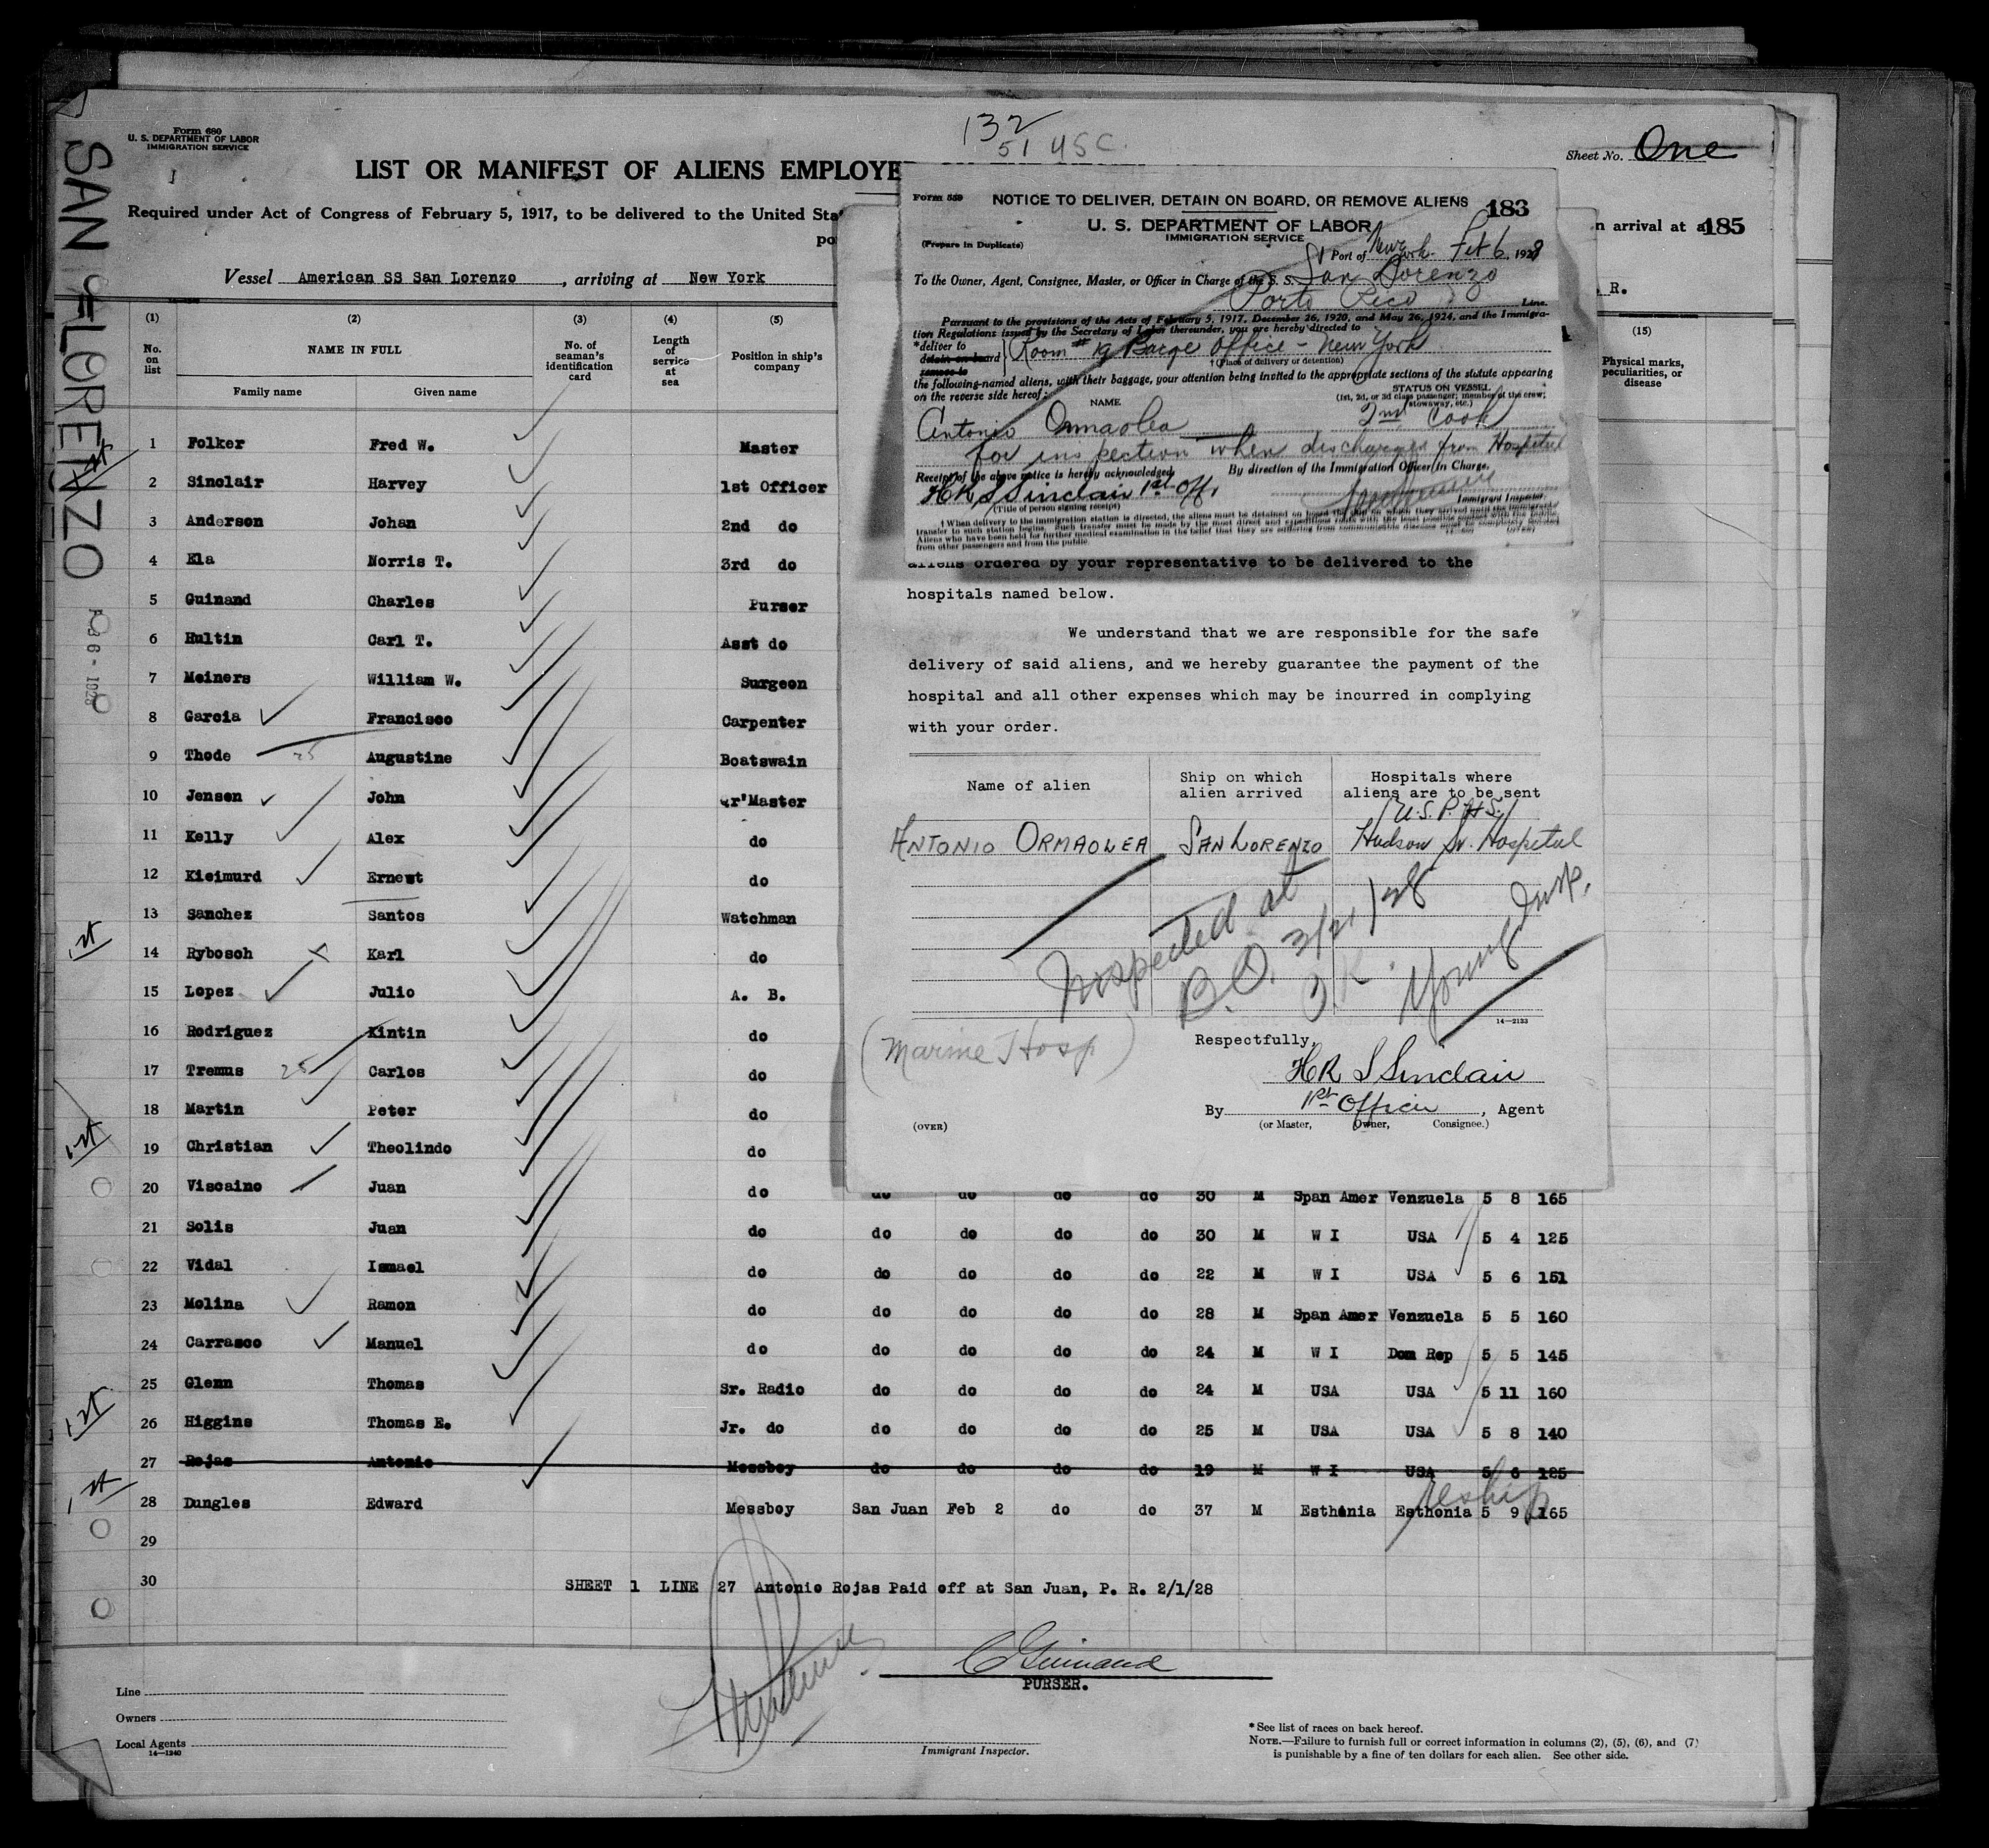 Form 680
U. S. DEPARTMENT OF LABOR
IMMIGRATION SERVICE
132
51 USC
Sheet No. One
LIST OR MANIFEST OF ALIENS EMPLOYE
Required under Act of Congress of February 5, 1917, to be delivered to the United Sta
po
n arrival at a
185
R.
Vessel American SS San Lorenzo , arriving at New York
SAN LORENZO
(1) (2) (3) (4) (5) (15)
No. on list
NAME IN FULL
Family name Given name
No. of seaman's identification card
Length of service at sea
Position in ship's company
Physical marks, peculiarities, or disease
1 Folker Fred W. Master
2 Sinclair Harvey 1st Officer
3 Anderson Johan 2nd do
4 Ela Norris T. 3rd do
5 Guinand Charles Purser
6 Hultin Carl T. Asst do
7 Meiners William W. Surgeon
8 Garcia Francisco Carpenter
9 Thode 25 Augustine Boatswain
10 Jensen John Qr'Master
11 Kelly Alex do
12 Kleimurd Ernest do
13 Sanchez Santos Watchman
1st
14 Rybosch Karl do
15 Lopez Julio A. B.
16 Rodriguez Kintin do
17 Tremus 25 Carlos do
18 Martin Peter do
1st
19 Christian Theolindo do
20 Viscaino Juan do do do do do 30 M Span Amer Venzuela 5 8 165
21 Solis Juan do do do do do 30 M W I USA 5 4 125
22 Vidal Ismael do do do do do 22 M W I USA 5 6 151
23 Molina Ramon do do do do do 28 M Span Amer Venzuela 5 5 160
24 Carrasco Manuel do do do do do 24 M W I Dom Rep 5 5 145
25 Glenn Thomas Sr. Radio do do do do 24 M USA USA 5 11 160
1st
26 Higgins Thomas E. Jr. do do do do do 25 M USA USA 5 8 140
27 Rojas Antonio Messboy do do do do 19 M W I USA 5 6 125
1st
28 Dungles Edward Messboy San Juan Feb 2 do do 37 M Esthonia Esthonia 5 9 165
reship
29
30
SHEET 1 LINE 27 Antonio Rojas Paid off at San Juan, P. R. 2/1/28
C Guinand
PURSER.
Line
Owners
Local Agents
14—1240
Immigrant Inspector.
* See list of races on back hereof.
NOTE.—Failure to furnish full or correct information in columns (2), (5), (6), and (7)
is punishable by a fine of ten dollars for each alien. See other side.
Form 559
NOTICE TO DELIVER, DETAIN ON BOARD, OR REMOVE ALIENS 183
U. S. DEPARTMENT OF LABOR
IMMIGRATION SERVICE
(Prepare in Duplicate)
Port of New York Feb 6, 1928
To the Owner, Agent, Consignee, Master, or Officer in Charge of the S. S. San Lorenzo
Porto Rico Line.
Pursuant to the provisions of the Acts of February 5, 1917, December 26, 1920, and May 26, 1924, and the Immigra-
tion Regulations issued by the Secretary of Labor thereunder, you are hereby directed to
*deliver to
detain on board
remove to
Room # 19 Barge Office - New York
†(Place of delivery or detention)
the following-named aliens, with their baggage, your attention being invited to the appropriate sections of the statute appearing
on the reverse side hereof:
NAME
STATUS ON VESSEL
(1st, 2d, or 3d class passenger; member of the crew;
stowaway, etc.)
Antonio Ormaolea 2nd Cook
for inspection when discharged from Hospital
Receipt of the above notice is hereby acknowledged. By direction of the Immigration Officer in Charge.
HR S Sinclair 1st Off.
(Title of person signing receipt)
Immigrant Inspector.
from other passengers and from the public.
aliens ordered by your representative to be delivered to the
hospitals named below.
We understand that we are responsible for the safe
delivery of said aliens, and we hereby guarantee the payment of the
hospital and all other expenses which may be incurred in complying
with your order.
Name of alien
Ship on which alien arrived
Hospitals where aliens are to be sent
(U.S.P.H.S.)
ANTONIO ORMAOLEA SAN LORENZO Hudson St. Hospital
Inspected at
B.O. 3/21/28
O.K. Young Insp.
14—2133
(Marine Hosp)
Respectfully,
HR S Sinclair
By 1st Officer , Agent
(or Master, Owner, Consignee.)
(OVER)